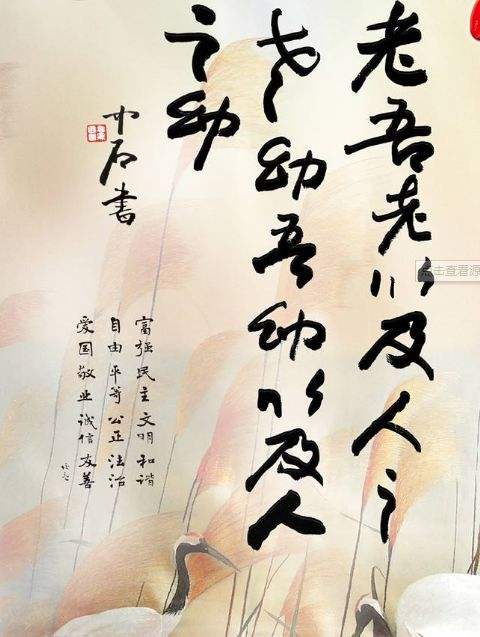 老吾老以及人之
老幼吾幼以及人
之幼
中石书
富强民主文明和谐
自由平等公正法治
爱国敬业诚信友善
点击查看源